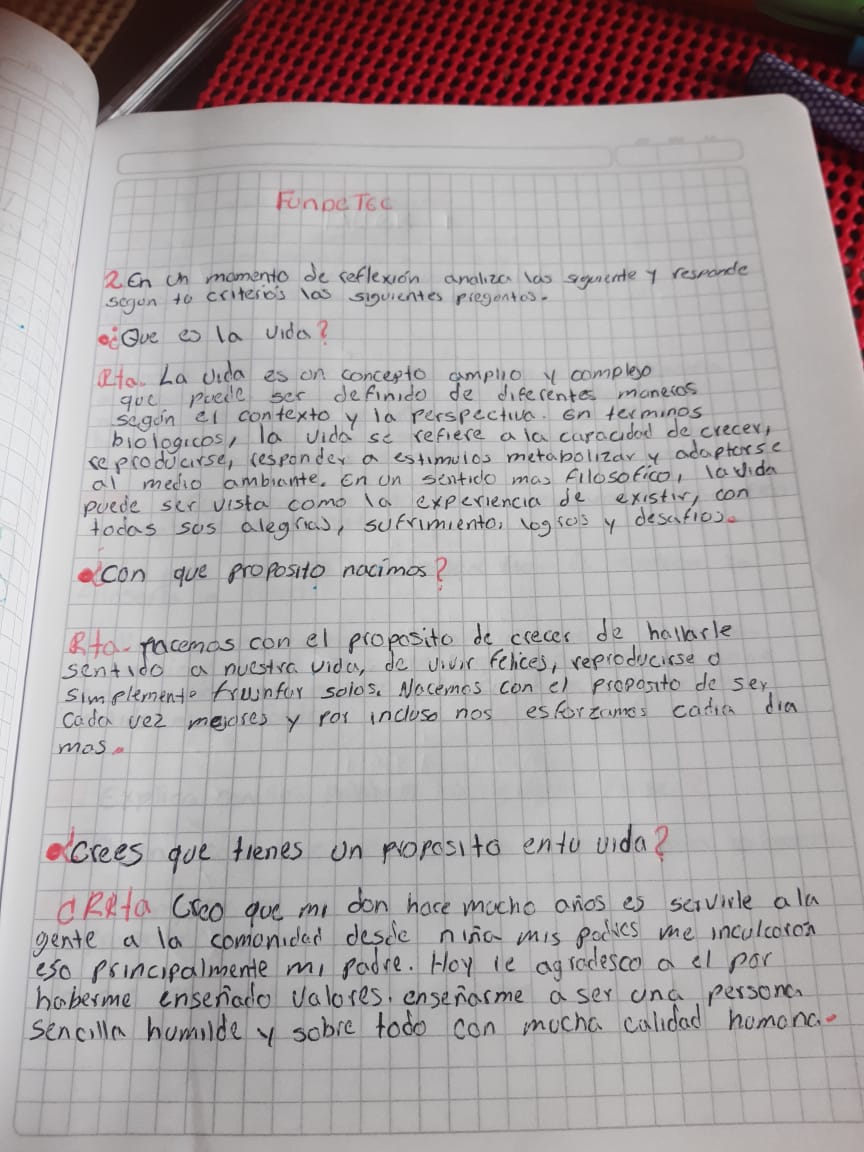 FunDeTec
2. En un momento de reflexión analiza las siguiente y responde
segun tu criterios las siguientes preguntas.
¿Que es la vida?
Rta. La vida es un concepto amplio y complejo
que puede ser definido de diferentes maneras
según el contexto y la perspectiva. En terminos
biologicos, la vida se refiere a la capacidad de crecer,
reproducirse, responder a estimulos metabolizar y adaptarse
al medio ambiante. En un sentido mas filosofico, la vida
puede ser vista como la experiencia de existir, con
todas sus alegrias, sufrimiento, logros y desafios.
¿Con que proposito nacimos?
Rta- nacemos con el proposito de crecer de hallarle
sentido a nuestra vida, de vivir felices, reproducirse o
simplemente triunfar solos. Nacemos con el proposito de ser
cada vez mejores y por incluso nos esforzamos cada dia
mas.
¿Crees que tienes un proposito en tu vida?
Rta Creo que mi don hace mucho años es servirle a la
gente a la comunidad desde niña mis padres me inculcaron
eso principalmente mi padre. Hoy le agradesco a el por
haberme enseñado valores, enseñarme a ser una persona
sencilla humilde y sobre todo con mucha calidad humana.